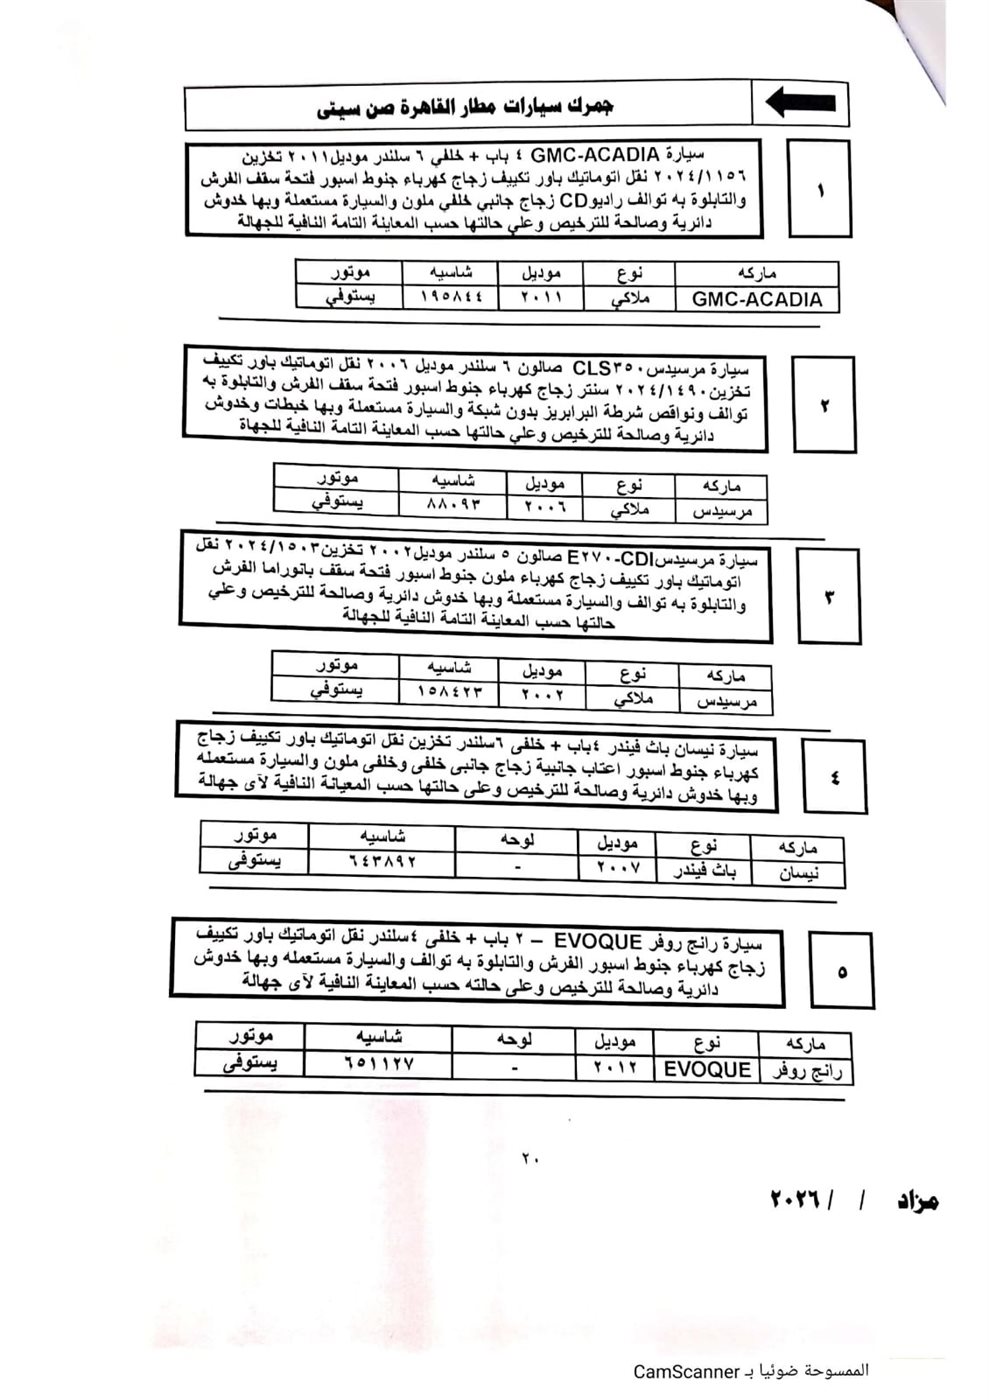 جمرك سيارات مطار القاهرة صن سيتى
١
سيارة GMC-ACADIA ٤ باب + خلفي ٦ سلندر موديل٢٠١١ تخزين
٢٠٢٤/١١٥٦ نقل اتوماتيك باور تكييف زجاج كهرباء جنوط اسبور فتحة سقف الفرش
والتابلوة به توالف راديوCD زجاج جانبي خلفي ملون والسيارة مستعملة وبها خدوش
دائرية وصالحة للترخيص وعلي حالتها حسب المعاينة التامة النافية للجهالة
ماركه نوع موديل شاسيه موتور
GMC-ACADIA ملاكي ٢٠١١ ١٩٥٨٤٤ يستوفي
٢
سيارة مرسيدس CLS٣٥٠ صالون ٦ سلندر موديل ٢٠٠٦ نقل اتوماتيك باور تكييف
تخزين٢٠٢٤/١٤٩٠ سنتر زجاج كهرباء جنوط اسبور فتحة سقف الفرش والتابلوة به
توالف ونواقص شرطة البرابريز بدون شبكة والسيارة مستعملة وبها خبطات وخدوش
دائرية وصالحة للترخيص وعلي حالتها حسب المعاينة التامة النافية للجهاة
ماركه نوع موديل شاسيه موتور
مرسيدس ملاكي ٢٠٠٦ ٨٨٠٩٣ يستوفي
٣
سيارة مرسيدسE٢٧٠-CDI صالون ٥ سلندر موديل٢٠٠٢ تخزين٢٠٢٤/١٥٠٣ نقل
اتوماتيك باور تكييف زجاج كهرباء ملون جنوط اسبور فتحة سقف بانوراما الفرش
والتابلوة به توالف والسيارة مستعملة وبها خدوش دائرية وصالحة للترخيص وعلي
حالتها حسب المعاينة التامة النافية للجهالة
ماركه نوع موديل شاسيه موتور
مرسيدس ملاكي ٢٠٠٢ ١٥٨٤٢٣ يستوفي
٤
سيارة نيسان باث فيندر ٤باب + خلفى ٦سلندر تخزين نقل اتوماتيك باور تكييف زجاج
كهرباء جنوط اسبور اعتاب جانبية زجاج جانبى خلفى وخلفى ملون والسيارة مستعمله
وبها خدوش دائرية وصالحة للترخيص وعلى حالتها حسب المعيانة النافية لآى جهالة
ماركه نوع موديل لوحه شاسيه موتور
نيسان باث فيندر ٢٠٠٧ - ٦٤٣٨٩٢ يستوفى
٥
سيارة رانج روفر EVOQUE – ٢ باب + خلفى ٤سلندر نقل اتوماتيك باور تكييف
زجاج كهرباء جنوط اسبور الفرش والتابلوة به توالف والسيارة مستعمله وبها خدوش
دائرية وصالحة للترخيص وعلى حالته حسب المعاينة النافية لآى جهالة
ماركه نوع موديل لوحه شاسيه موتور
رانج روفر EVOQUE ٢٠١٢ - ٦٥١١٢٧ يستوفى
٢٠
مزاد / / ٢٠٢٦
الممسوحة ضوئيا بـ CamScanner